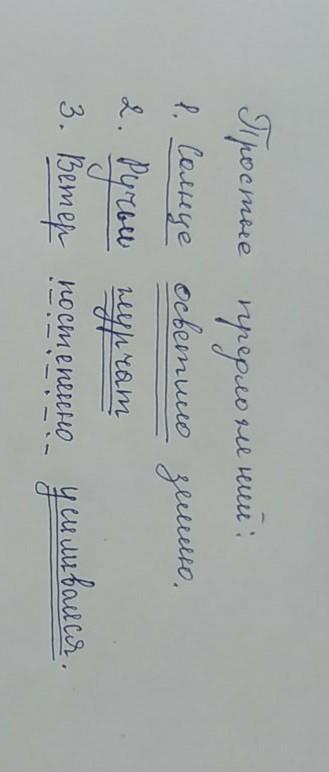 Простые предложений:
1. Солнце осветило землю.
2. Ручьи журчат
3. Ветер постепенно усиливался.